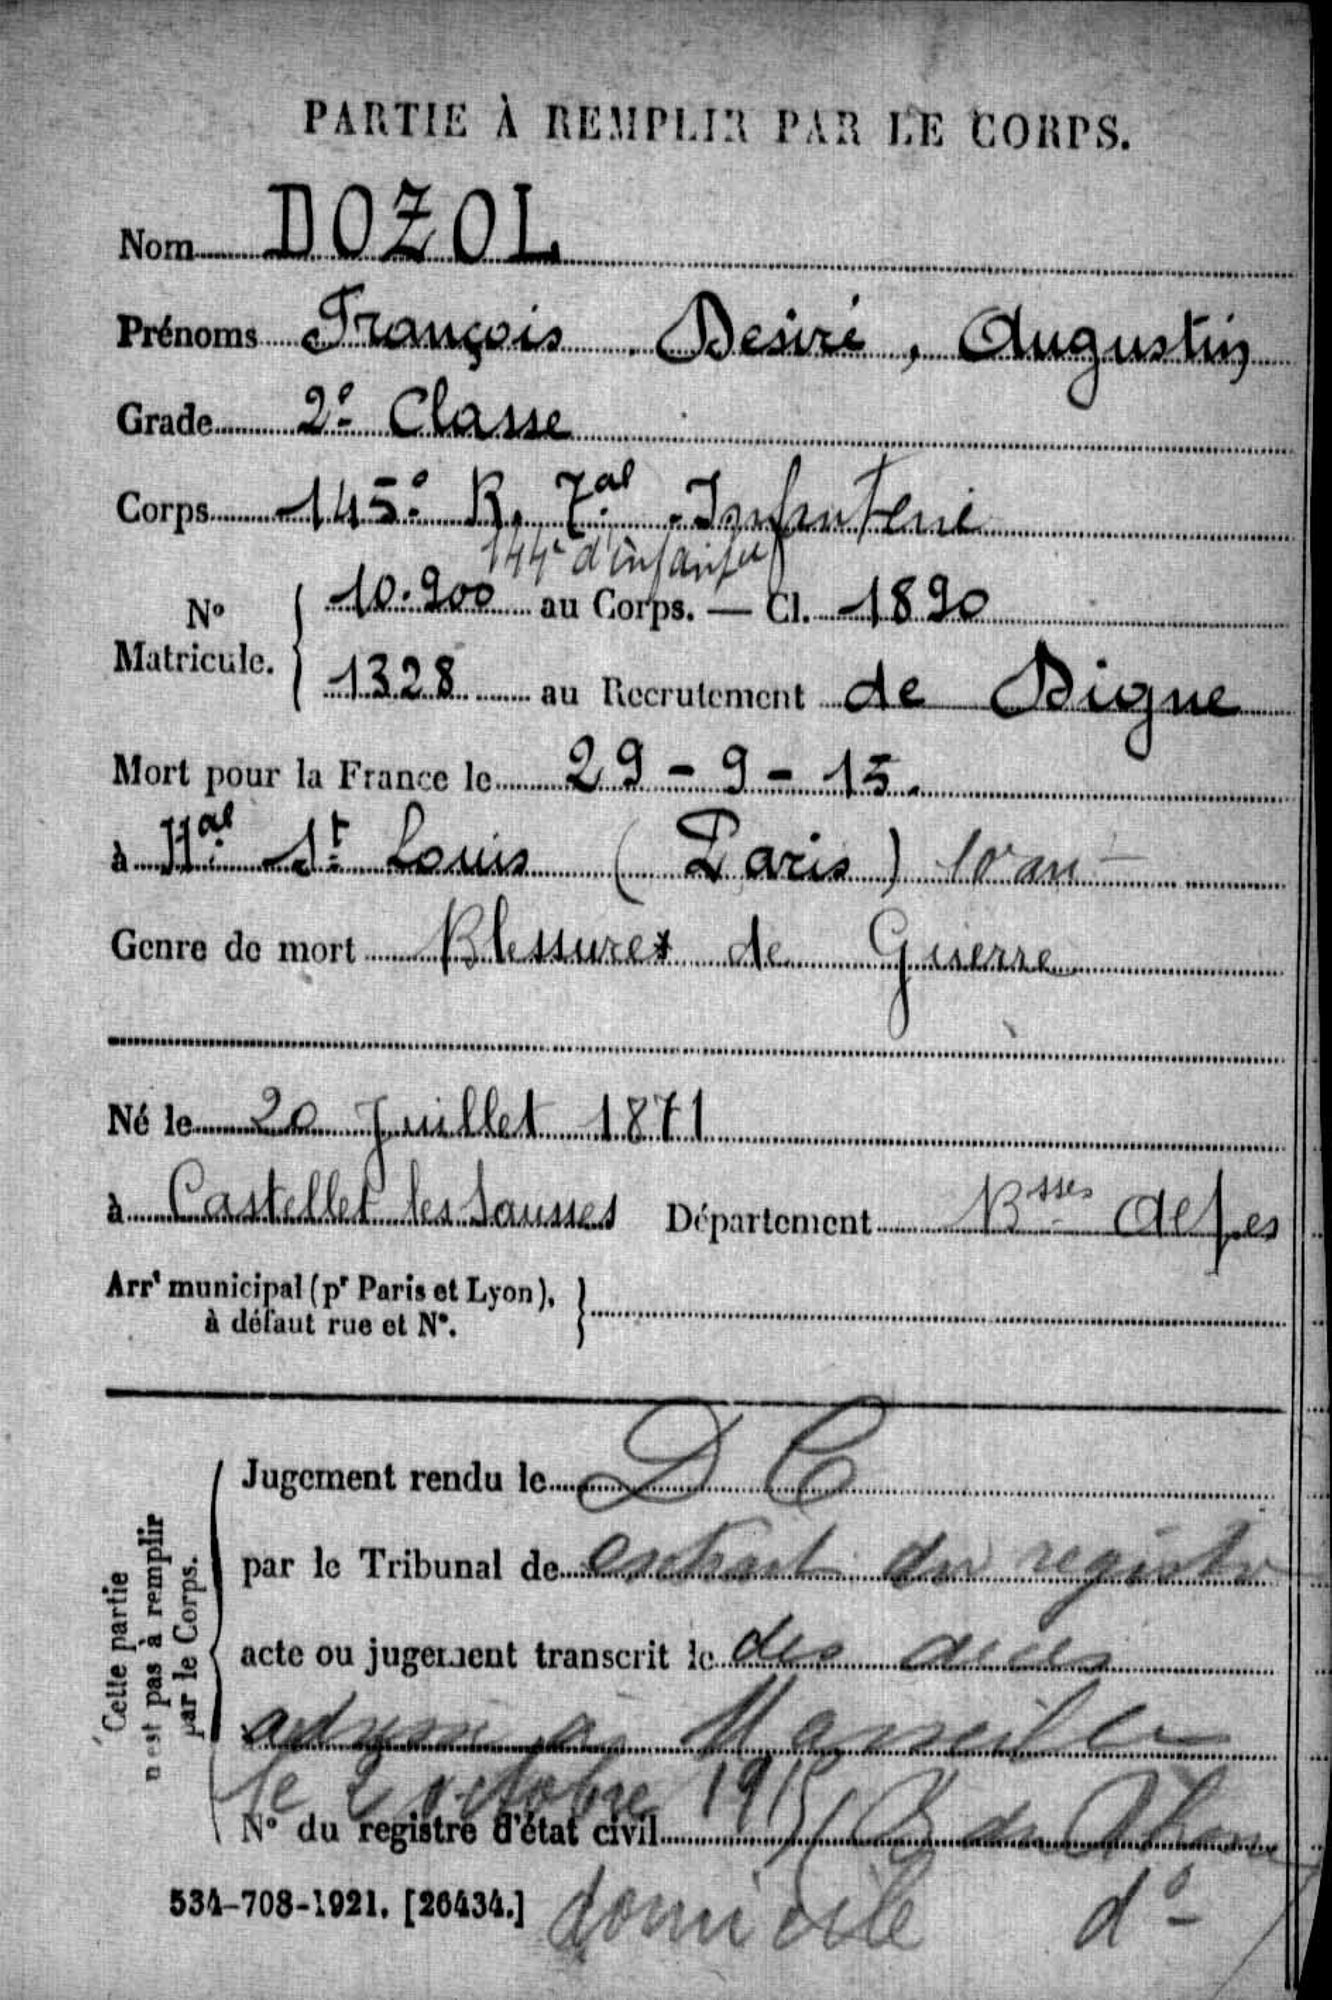 PARTIE À REMPLIR PAR LE CORPS.
Nom DOZOL
Prénoms François, Desiré, Augustin
Grade 2e Classe
Corps 145e R. 7al Infanterie
144e d'infanterie
No Matricule. 10.900 au Corps. — Cl. 1890
1328 au Recrutement de Digne
Mort pour la France le 29-9-15.
à Hal St Louis (Paris) 10 arr
Genre de mort Blessures de Guerre
Né le 20 Juillet 1871
à Castellet les Sausses Département Bsses Alpes
Arrt municipal (pr Paris et Lyon),
à défaut rue et No.
Cette partie
n'est pas à remplir
par le Corps.
Jugement rendu le D C
par le Tribunal de extrait du registre
acte ou jugement transcrit le des décès
adressé à Marseille
le 2 octobre 1915 (B du Rhone
No du registre d'état civil
534-708-1921. [26434.] domicile do